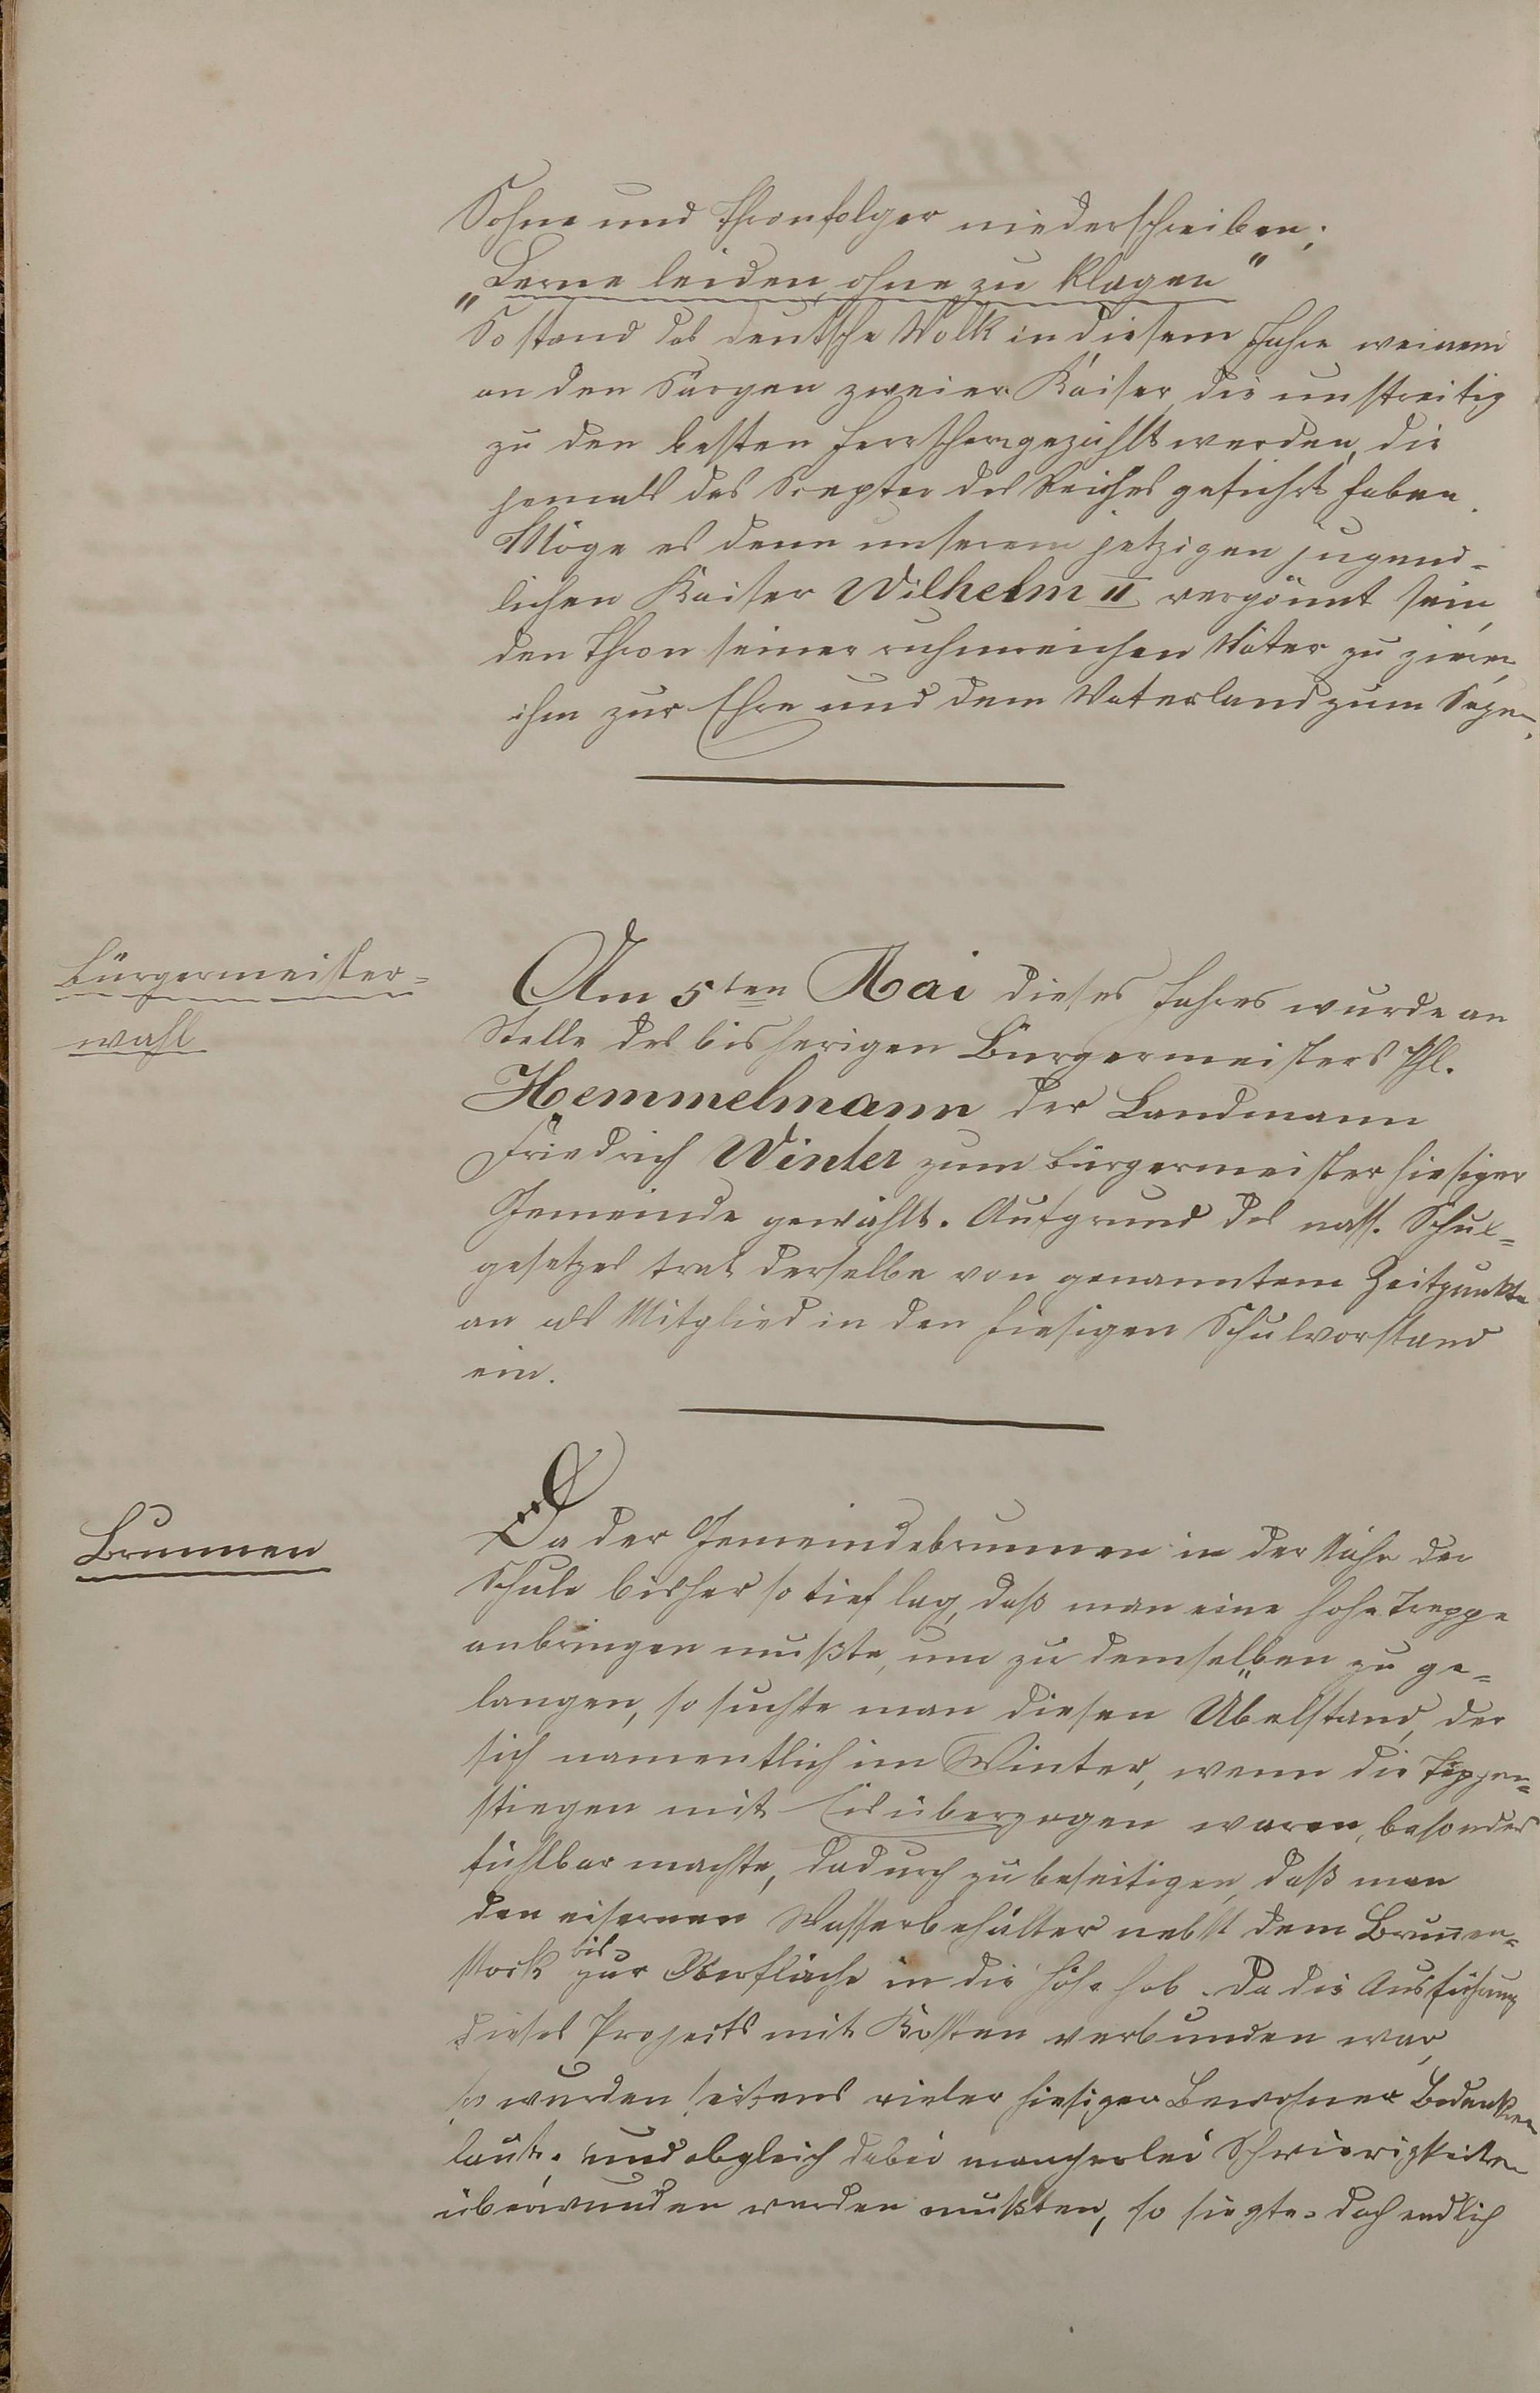 Sohne und Thronfolger niederschreiben:
„Lerne leiden, ohne zu klagen"
So stand das deutsche Volk in diesem Jahre weinend
an den Särgen zweier Kaiser, die unstreitig
zu den besten Herrschern gezählt werden, die
jemals das Scepter des Reiches geführt haben.
Möge es denn unserem jetzigen jugend-
lichen Kaiser Wilhelm II vergönnt sein,
den Thron seiner ruhmreichen Väter zu zieren,
ihm zur Ehre und dem Vaterland zum Segen.
Bürgermeister-
wahl
Am 5ten Mai dieses Jahres wurde an
Stelle des bisherigen Bürgermeisters Phl.
Hemmelmann der Landmann
Friedrich Winter zum Bürgermeister hiesiger
Gemeinde gewählt. Aufgrund des nass. Schul-
gesetzes trat derselbe von genanntem Zeitpunkte
an als Mitglied in den hiesigen Schulvorstand
ein.
Brunnen
Da der Gemeindebrunnen in der Nähe der
Schule bisher so tief lag, daß man eine hohe Treppe
anbringen mußte, um zu demselben zu ge-
langen, so suchte man diesen Übelstand, der
sich namentlich im Winter, wenn die
stiegen mit Eis überzogen waren, besonders
fühlbar machte, dadurch zu beseitigen, daß man
den eisernen Wasserbehälter nebst dem Brunen-
stock bis zur Oberfläche in die Höhe hob. Da die Ausführung
dieses Projects mit Kosten verbunden war,
so wurden seitens vieler hiesiger Bewohner Bedenken
laut. und obgleich dabei mancherlei Schwierigkeiten
überwunden werden mußten, so siegte doch endlich